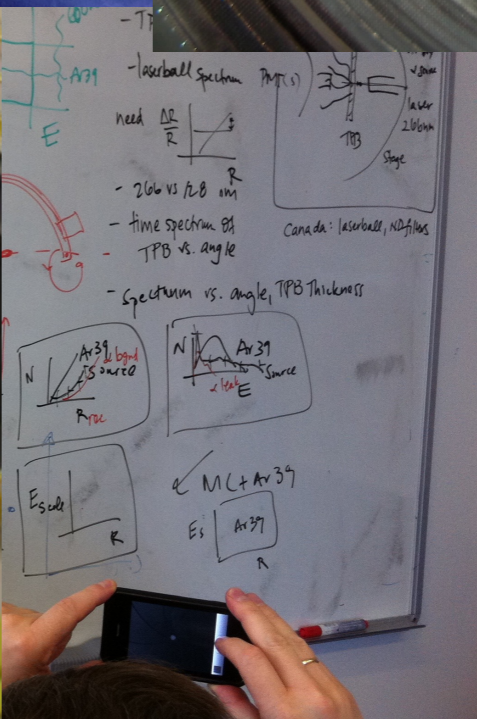 Ar39
E
- laserball spectrum
need ΔR/R
R
- 266 vs 128 nm
- time spectrum of
TPB vs. angle
- spectrum vs. angle, TPB Thickness
PMT(s)
TPB
laser
266nm
Stage
Canada: laserball, ND filters
N
Ar39
α bgnd
Source
R rec
N
Ar39
Source
α leak
E
E scale
R
MC + Ar39
Es
Ar39
R